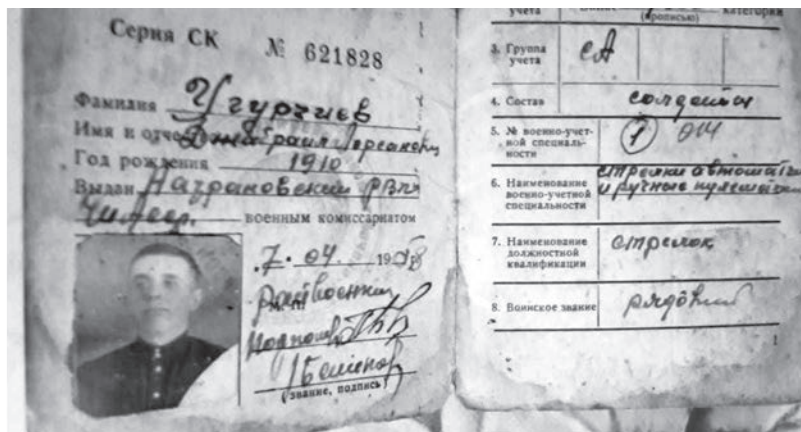 Серия СК № 621828
Фамилия Угурчиев
Имя и отчест Джабраил Лорсанович
Год рождения 1910
Выдан Назрановский РВК
ЧИАССР. военным комиссариатом
7. 04 1958
Райвоенком
Подполк
(звание, подпись)
учета категории
(прописью)
3. Группа учета СА
4. Состав солдаты
5. № военно-учет-
ной специаль-
ности 1 014
6. Наименование
военно-учетной
специальности стрелки автоматч
и ручные пулеметч
7. Наименование
должностной
квалификации стрелок
8. Воинское звание рядовий
1